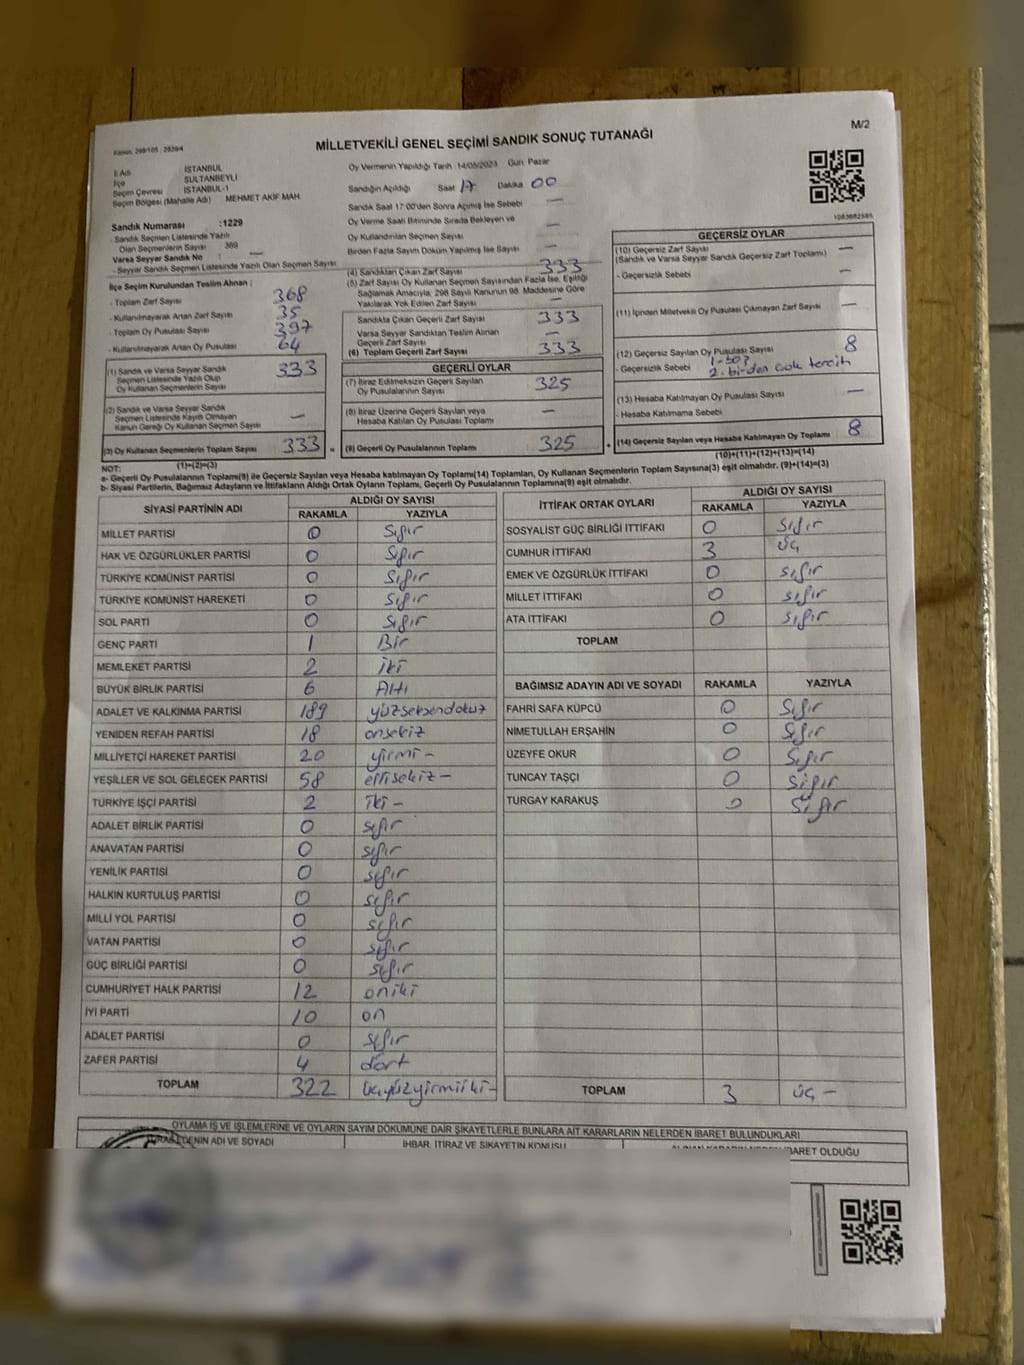 M/2
MİLLETVEKİLİ GENEL SEÇİMİ SANDIK SONUÇ TUTANAĞI
İl Adı İSTANBUL
İlçe SULTANBEYLİ
Seçim Çevresi İSTANBUL-1
Seçim Bölgesi (Mahalle Adı) MEHMET AKİF MAH.
Oy Vermenin Yapıldığı Tarih :14/05/2023 Gün: Pazar
Sandığın Açıldığı Saat 17 Dakika 00
Sandık Saat 17:00'den Sonra Açılmış İse Sebebi —
Oy Verme Saati Bitiminde Sırada Bekleyen ve
Oy Kullandırılan Seçmen Sayısı —
Birden Fazla Sayım Döküm Yapılmış İse Sayısı —
Sandık Numarası :1229
- Sandık Seçmen Listesinde Yazılı
Olan Seçmenlerin Sayısı 369
Varsa Seyyar Sandık No : —
- Seyyar Sandık Seçmen Listesinde Yazılı Olan Seçmen Sayısı
İlçe Seçim Kurulundan Teslim Alınan :
- Toplam Zarf Sayısı 368
- Kullanılmayarak Artan Zarf Sayısı 35
- Toplam Oy Pusulası Sayısı 397
- Kullanılmayarak Artan Oy Pusulası 64
(1) Sandık ve Varsa Seyyar Sandık
Seçmen Listesinde Yazılı Olup
Oy Kullanan Seçmenlerin Sayısı 333
(2) Sandık ve Varsa Seyyar Sandık
Seçmen Listesinde Kayıtlı Olmayan
Kanun Gereği Oy Kullanan Seçmen Sayısı —
(3) Oy Kullanan Seçmenlerin Toplam Sayısı 333
(1)+(2)=(3)
(4) Sandıktan Çıkan Zarf Sayısı 333
(5) Zarf Sayısı Oy Kullanan Seçmen Sayısından Fazla İse, Eşitliği
Sağlamak Amacıyla, 298 Sayılı Kanunun 98. Maddesine Göre
Yakılarak Yok Edilen Zarf Sayısı —
Sandıkta Çıkan Geçerli Zarf Sayısı 333
Varsa Seyyar Sandıktan Teslim Alınan
Geçerli Zarf Sayısı —
(6) Toplam Geçerli Zarf Sayısı 333
GEÇERLİ OYLAR
(7) İtiraz Edilmeksizin Geçerli Sayılan
Oy Pusulalarının Sayısı 325
(8) İtiraz Üzerine Geçerli Sayılan veya
Hesaba Katılan Oy Pusulası Toplamı —
(9) Geçerli Oy Pusulalarının Toplamı 325
1083682585
GEÇERSİZ OYLAR
(10) Geçersiz Zarf Sayısı —
(Sandık ve Varsa Seyyar Sandık Geçersiz Zarf Toplamı)
- Geçersizlik Sebebi —
(11) İçinden Milletvekili Oy Pusulası Çıkmayan Zarf Sayısı —
(12) Geçersiz Sayılan Oy Pusulası Sayısı 8
- Geçersizlik Sebebi
2. birden çok tercih
(13) Hesaba Katılmayan Oy Pusulası Sayısı —
- Hesaba Katılmama Sebebi
(14) Geçersiz Sayılan veya Hesaba Katılmayan Oy Toplamı 8
(10)+(11)+(12)+(13)=(14)
NOT:
a- Geçerli Oy Pusulalarının Toplamı(9) ile Geçersiz Sayılan veya Hesaba katılmayan Oy Toplamı(14) Toplamları, Oy Kullanan Seçmenlerin Toplam Sayısına(3) eşit olmalıdır. (9)+(14)=(3)
b- Siyasi Partilerin, Bağımsız Adayların ve İttifakların Aldığı Ortak Oyların Toplamı, Geçerli Oy Pusulalarının Toplamına(9) eşit olmalıdır.
SİYASİ PARTİNİN ADI ALDIĞI OY SAYISI
RAKAMLA YAZIYLA
MİLLET PARTİSİ 0 Sıfır
HAK VE ÖZGÜRLÜKLER PARTİSİ 0 Sıfır
TÜRKİYE KOMÜNİST PARTİSİ 0 Sıfır
TÜRKİYE KOMÜNİST HAREKETİ 0 Sıfır
SOL PARTİ 0 Sıfır
GENÇ PARTİ 1 Bir
MEMLEKET PARTİSİ 2 iki
BÜYÜK BİRLİK PARTİSİ 6 Altı
ADALET VE KALKINMA PARTİSİ 189 yüzseksendokuz
YENİDEN REFAH PARTİSİ 18 onsekiz
MİLLİYETÇİ HAREKET PARTİSİ 20 yirmi —
YEŞİLLER VE SOL GELECEK PARTİSİ 58 ellisekiz —
TÜRKİYE İŞÇİ PARTİSİ 2 iki —
ADALET BİRLİK PARTİSİ 0 sıfır
ANAVATAN PARTİSİ 0 sıfır
YENİLİK PARTİSİ 0 sıfır
HALKIN KURTULUŞ PARTİSİ 0 sıfır
MİLLİ YOL PARTİSİ 0 sıfır
VATAN PARTİSİ 0 sıfır
GÜÇ BİRLİĞİ PARTİSİ 0 sıfır
CUMHURİYET HALK PARTİSİ 12 oniki
İYİ PARTİ 10 on
ADALET PARTİSİ 0 sıfır
ZAFER PARTİSİ 4 dört
TOPLAM 322 üçyüzyirmiiki —
İTTİFAK ORTAK OYLARI ALDIĞI OY SAYISI
RAKAMLA YAZIYLA
SOSYALİST GÜÇ BİRLİĞİ İTTİFAKI 0 Sıfır
CUMHUR İTTİFAKI 3 üç
EMEK VE ÖZGÜRLÜK İTTİFAKI 0 sıfır
MİLLET İTTİFAKI 0 sıfır
ATA İTTİFAKI 0 sıfır
TOPLAM
BAĞIMSIZ ADAYIN ADI VE SOYADI RAKAMLA YAZIYLA
FAHRİ SAFA KÜPCÜ 0 Sıfır
NİMETULLAH ERŞAHİN 0 Sıfır
ÜZEYFE OKUR 0 Sıfır
TUNCAY TAŞÇI 0 Sıfır
TURGAY KARAKUŞ 0 Sıfır
TOPLAM 3 üç —
OYLAMA İŞ VE İŞLEMLERİNE VE OYLARIN SAYIM DÖKÜMÜNE DAİR ŞİKAYETLERLE BUNLARA AİT KARARLARIN NELERDEN İBARET BULUNDUKLARI
ADI VE SOYADI İHBAR, İTİRAZ VE ŞİKAYETİN KONUSU İBARET OLDUĞU